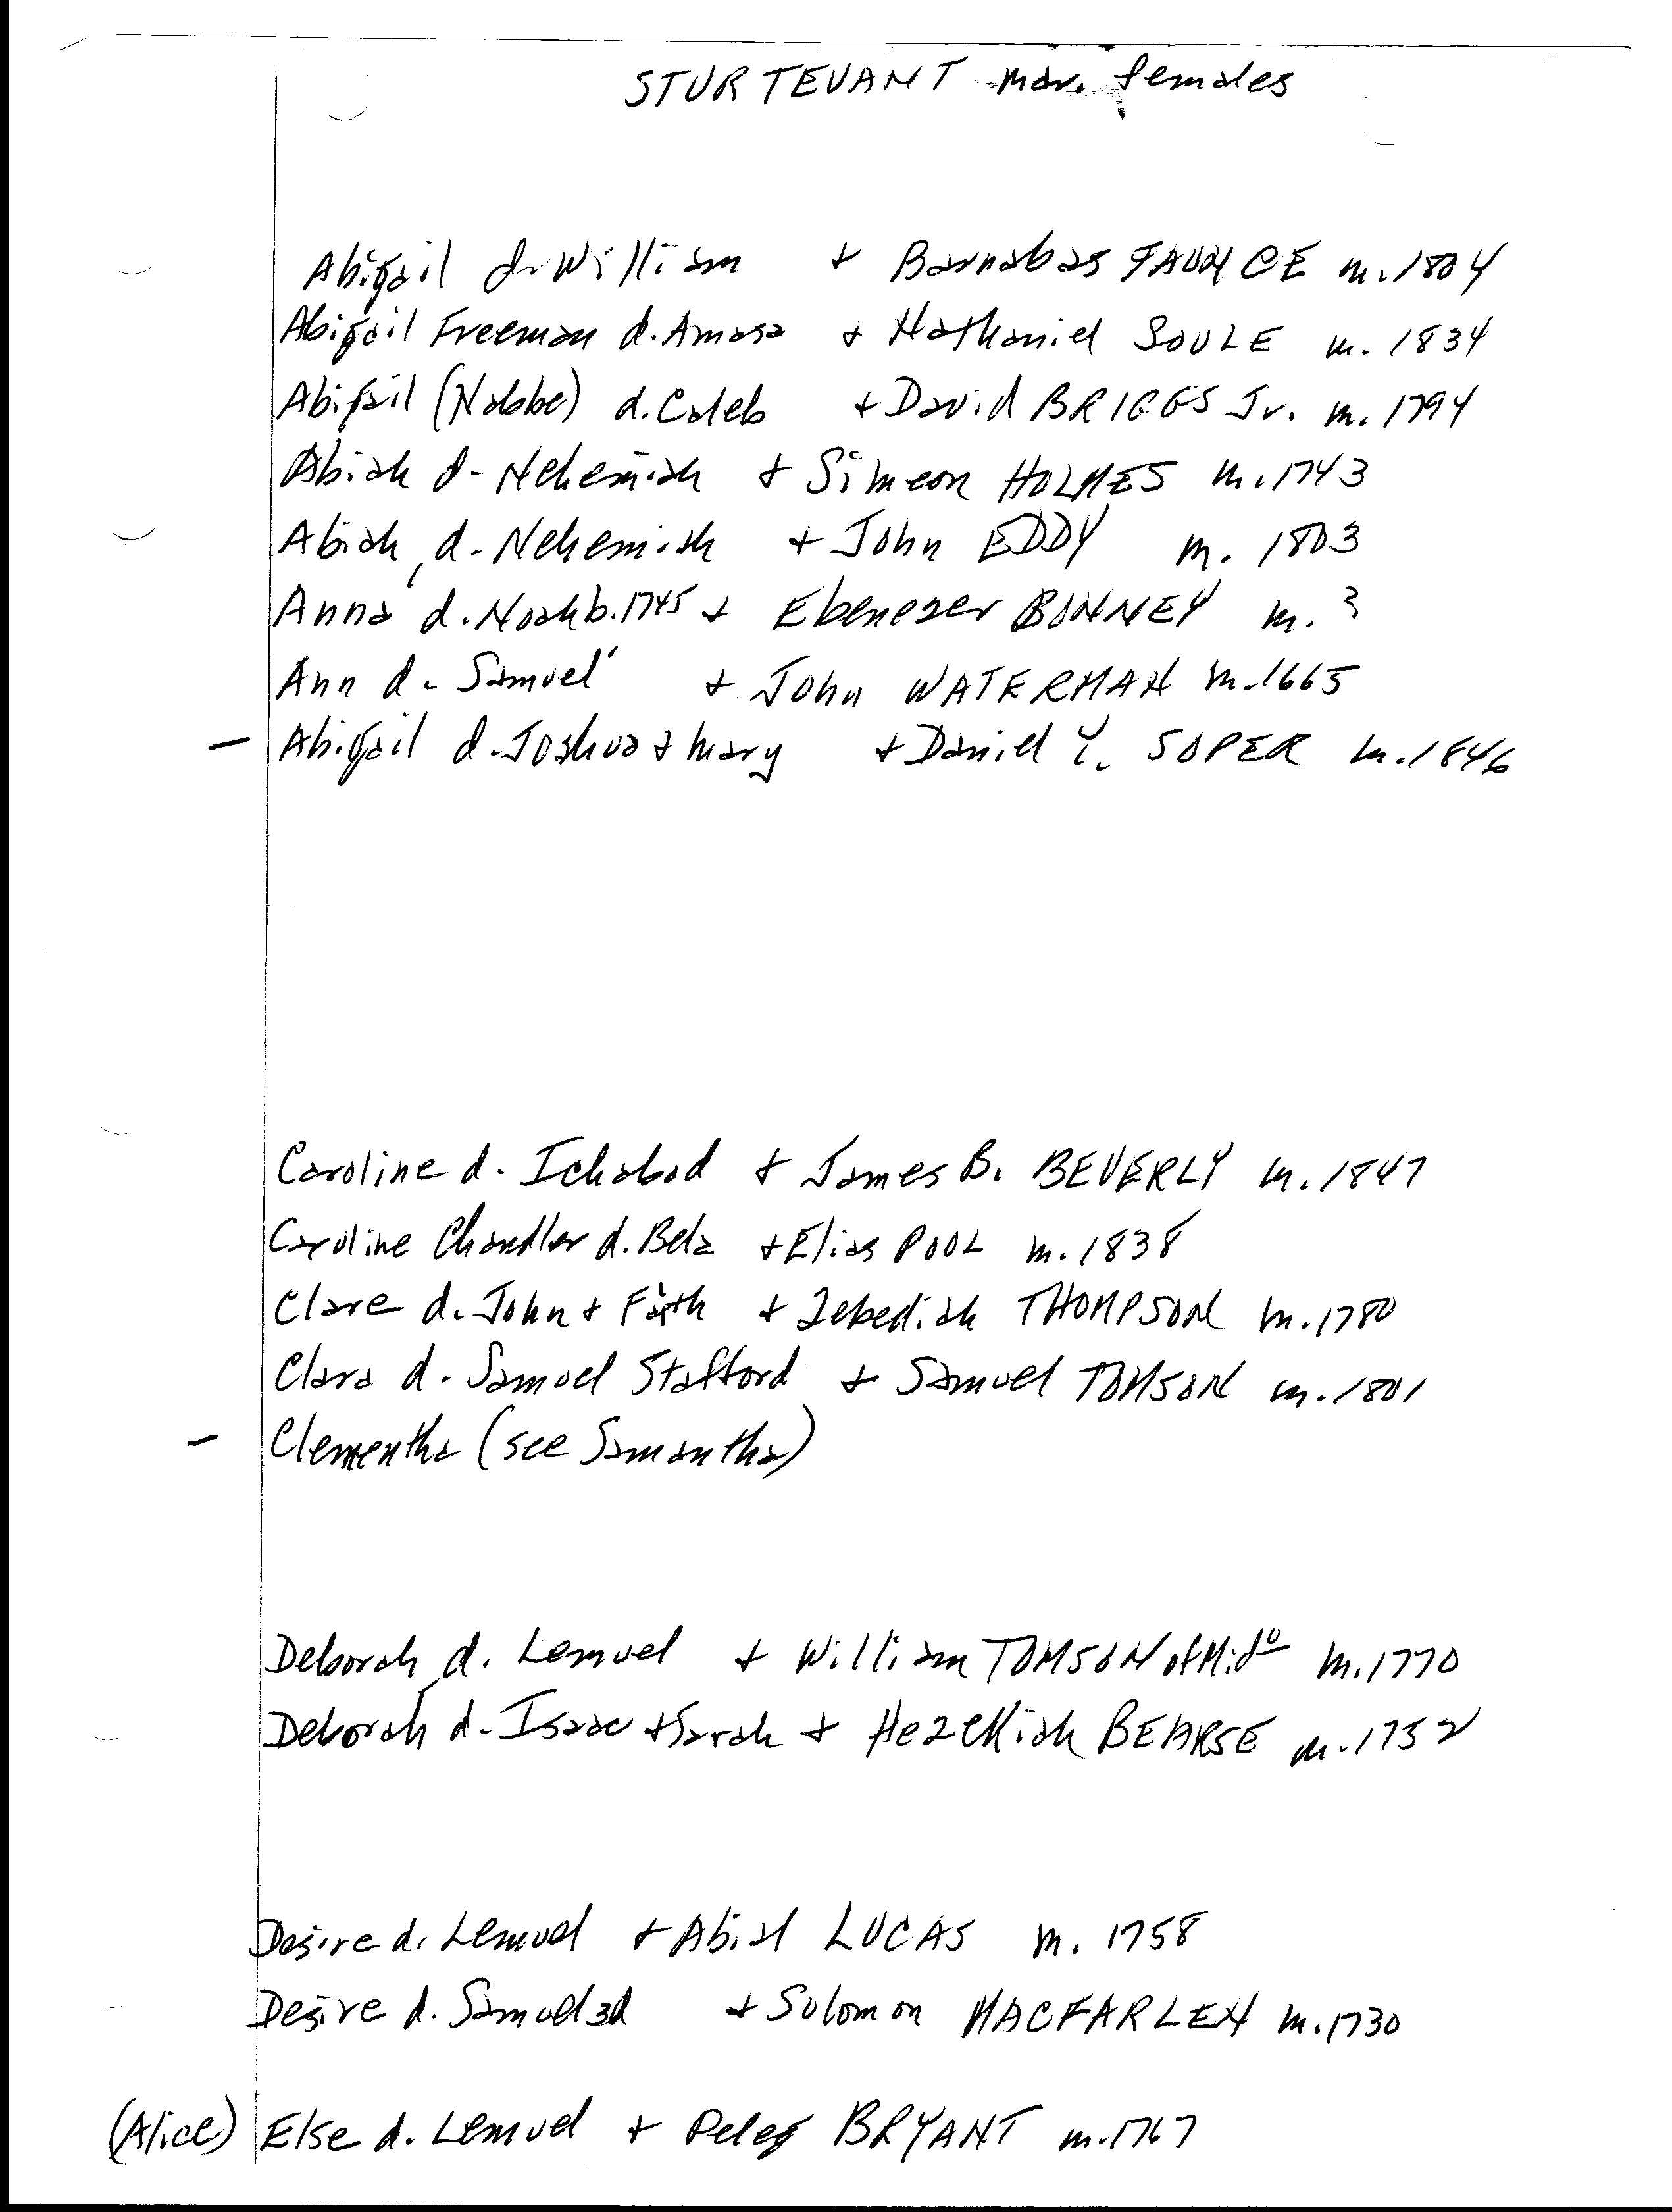 STURTEVANT mar. females
Abigail d. William + Barnabas FAUNCE m. 1804
Abigail Freeman d. Amasa + Nathaniel SOULE m. 1834
Abigail (Nabbe) d. Caleb + David BRIGGS Jr. m. 1794
Abiah d- Nehemiah + Simeon HOLMES m. 1743
Abiah, d. Nehemiah + John EDDY m. 1803
Anna d. Noah b. 1745 + Ebenezer BONNEY m. ?
Ann d. Samuel + John WATERMAN m. 1665
- Abigail d. Joshua + Mary + Daniel Y. SOPER m. 1846
Caroline d. Ichabod + James B. BEVERLY m. 1847
Caroline Chandler d. Bela + Elias POOL m. 1838
Clare d. John + Faith + Zebediah THOMPSON m. 1780
Clara d. Samuel Stafford + Samuel TOMSON m. 1801
- Clementha (see Samantha)
Deborah, d. Lemuel + William TOMSON of Mido m. 1770
Deborah d. Isaac + Sarah + Hezekiah BEARSE m. 1752
Desire d. Lemuel + Abial LUCAS m. 1758
Desire d. Samuel 3d + Solomon MACFARLEN m. 1730
(Alice) Else d. Lemuel + Peleg BRYANT m. 1767